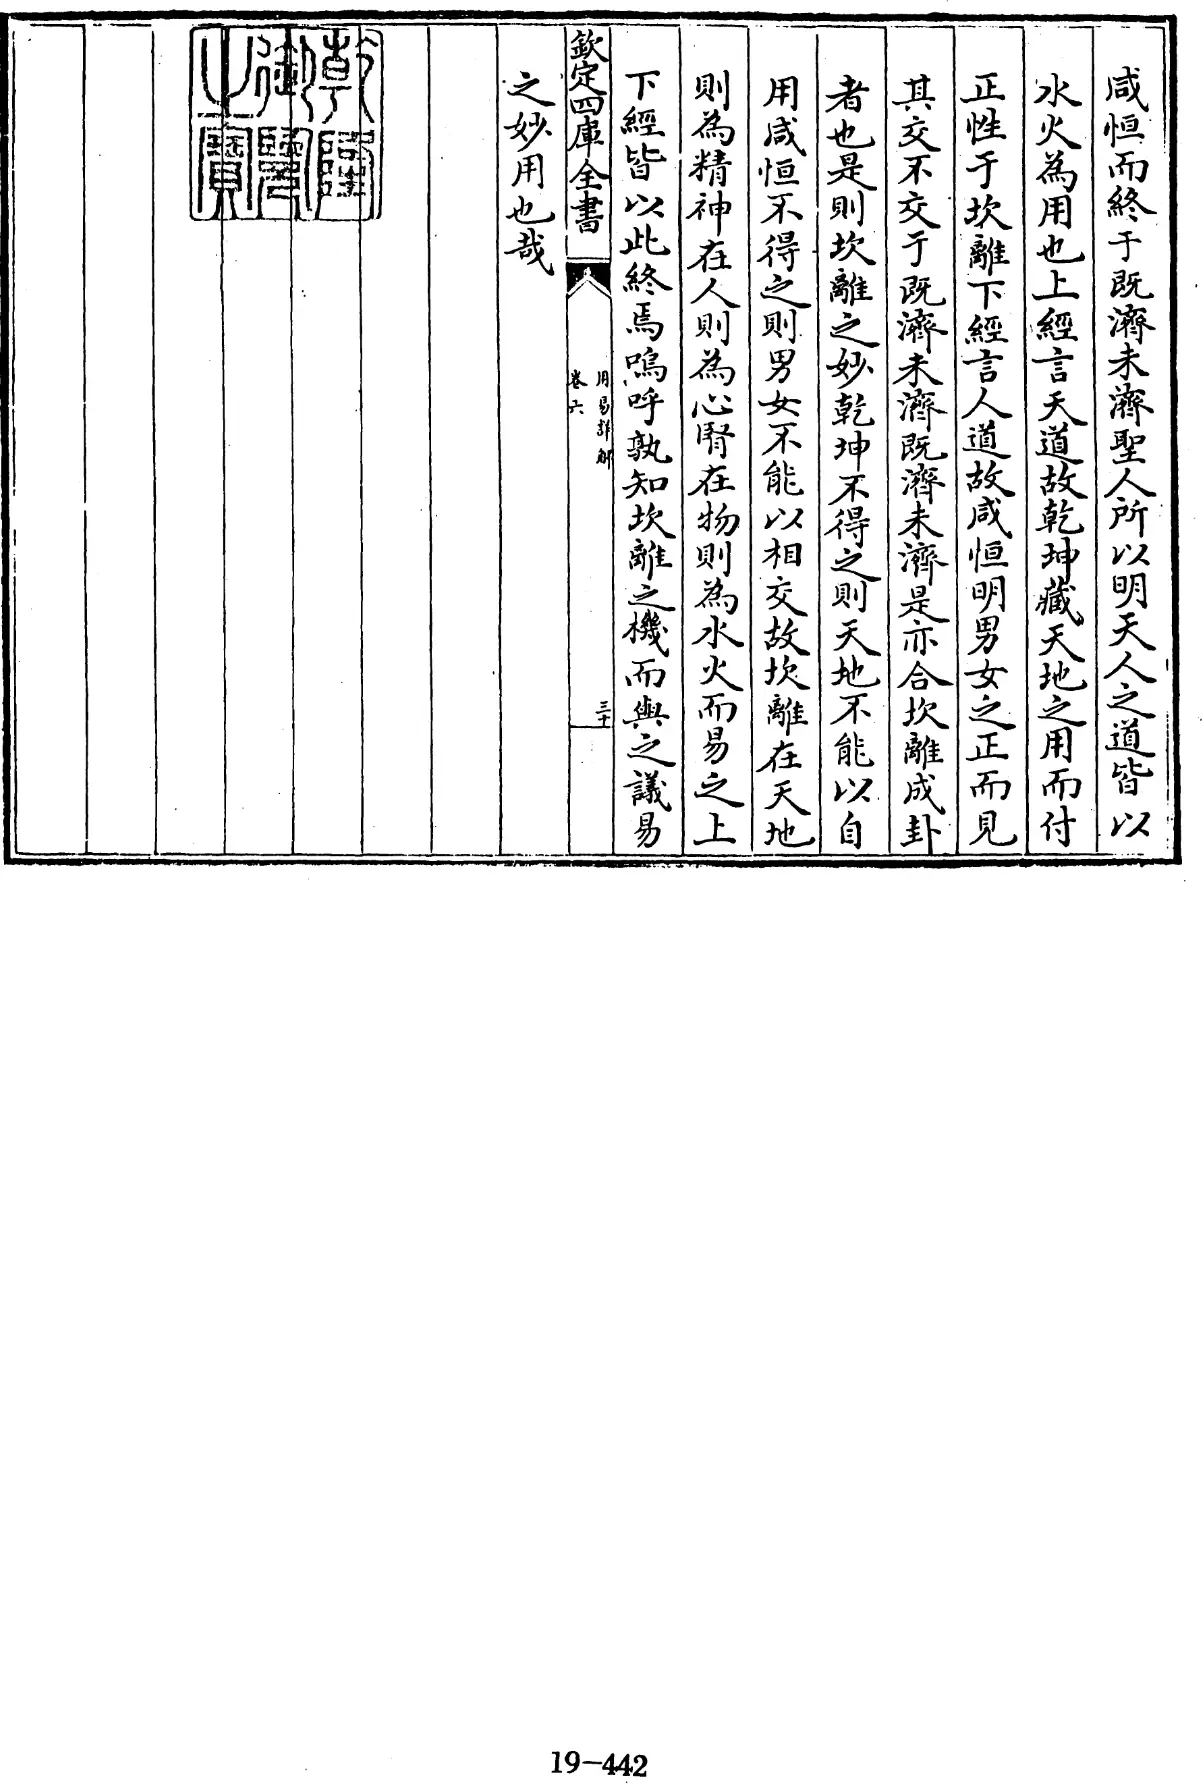 咸恒而終于既濟未濟聖人所以明天人之道皆以
水火為用也上經言天道故乾坤藏天地之用而付
正性于坎離下經言人道故咸恒明男女之正而見
其交不交于既濟未濟既濟未濟是亦合坎離成卦
者也是則坎離之妙乾坤不得之則天地不能以自
用咸恒不得之則男女不能以相交故坎離在天地
則為精神在人則為心腎在物則為水火而易之上
下經皆以此終焉嗚呼孰知坎離之機而與之議易
欽定四庫全書
用易詳解
卷六
三十
之妙用也哉
乾隆
御覽
之寶
19-442